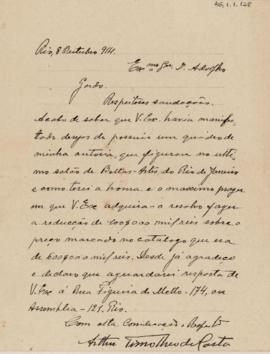 AG.1.1.128
Rio, 8 Outubro 911.
Exmo Snr. D. Adolpho
Gordo.
Respeitosas saudações.
Acabo de saber que V. Exa havia manifes-
tado desejo de possuir um quadro de
minha autoria, que figurou no ulti-
mo salão de Bellas-Artes do Rio de Janeiro
e como teria a honra e o maximo prazer
em que V. Exa adquira-o resolvo fazer
a reducção de mil reis sobre o
preço marcado no catalogo que era
de mil reis. Desde já agradeço
e declaro que aguardarei resposta de
V. Exa á Rua Figueira de Mello-174, ou
Assemblea-121, Rio.
Com alta Consideração e Respeito
Arthur Timotheo da Costa